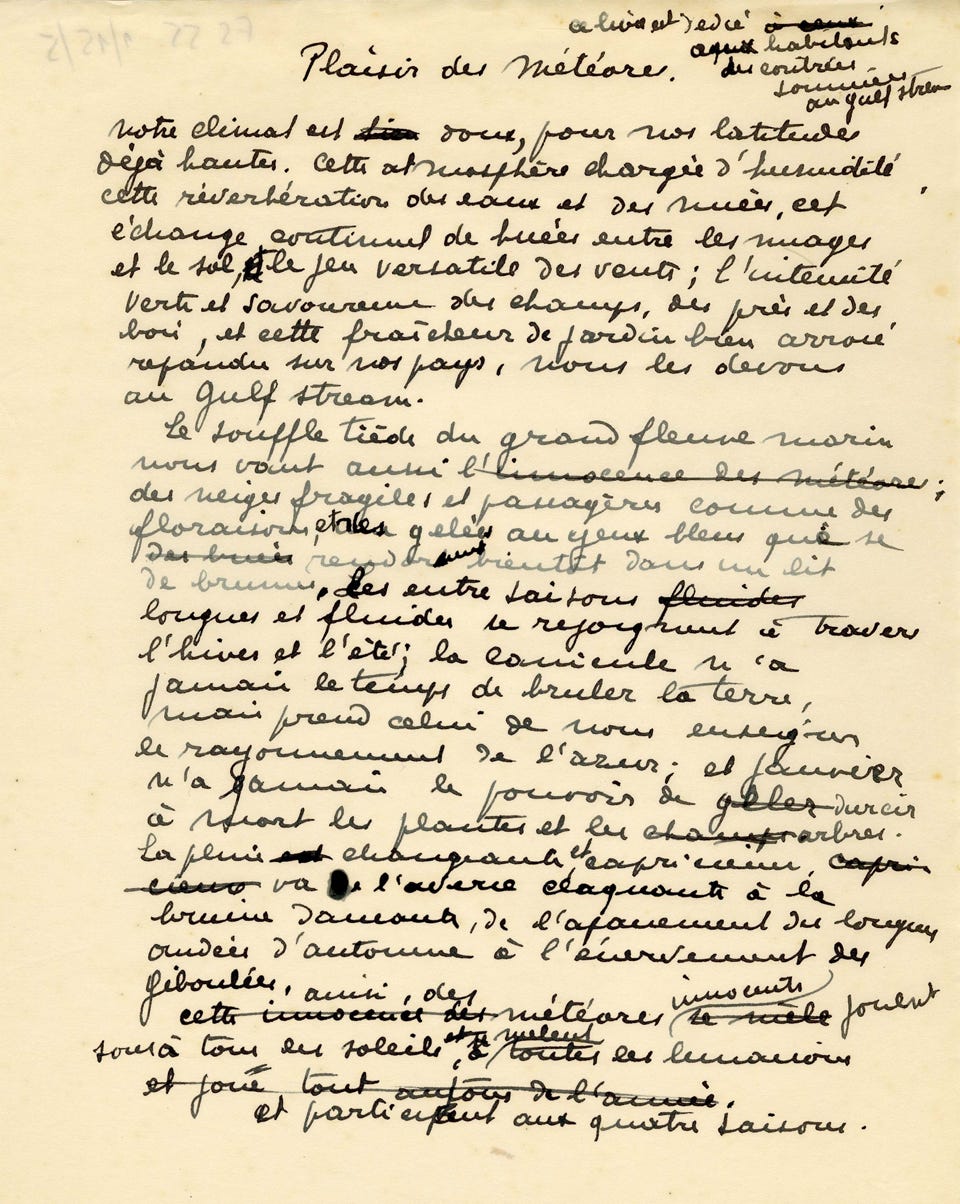 ce livre est dedié à ceux
aux habitants
des contrées
soumises
au gulf stream
Plaisir des Météores.
Notre climat est bien doux, pour nos latitudes
déjà hautes. Cette atmosphère chargée d'humidité
cette réverbération des eaux et des nuées, cet
échange continuel de buées entre les nuages
et le sol, le jeu versatile des vents ; l'intensité
verte et savoureuse des champs, des prés et des
bois, et cette fraîcheur de jardin bien arrosé
répandu sur nos pays, nous les devons
au Gulf stream.
Le souffle tiède du grand fleuve marin
nous vaut aussi l'innocence des météores ;
des neiges fragiles et passagères comme des
floraisons, et des gelées aux yeux bleus que se
des buées rendorment bientôt dans un lit
de brumes. Les entre saisons fluides
longues et fluides se rejoignent à travers
l'hiver et l'été ; la canicule n'a
jamais le temps de bruler la terre,
mais prend celui de nous enseigner
le rayonnement de l'azur ; et janvier
n'a jamais le pouvoir de geler durcir
à mort les plantes et les champs arbres.
La pluie est changeante et capricieuse, capri
cieuse va de l'averse claquante à la
bruine dansante, de l'apaisement des longues
ondées d'automne à l'énervement des
giboulées, ainsi, des
cette innocence des météores innocents se mêle jouent
sous à tous les soleils, et se mêlent à toutes les lunaisons
et joue tout au long de l'année.
et participent aux quatre saisons.